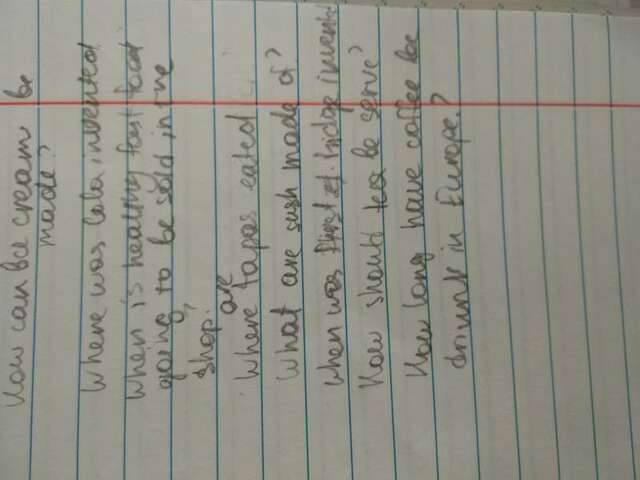 How can ice cream be
made?
Where was cola invented
When is healthy fast food
going to be sold in the
shop?
are
Where tapas eated
What are sush made of?
When was first fridge invent
How should tea be serve?
How long have coffee be
drunk in Europe?